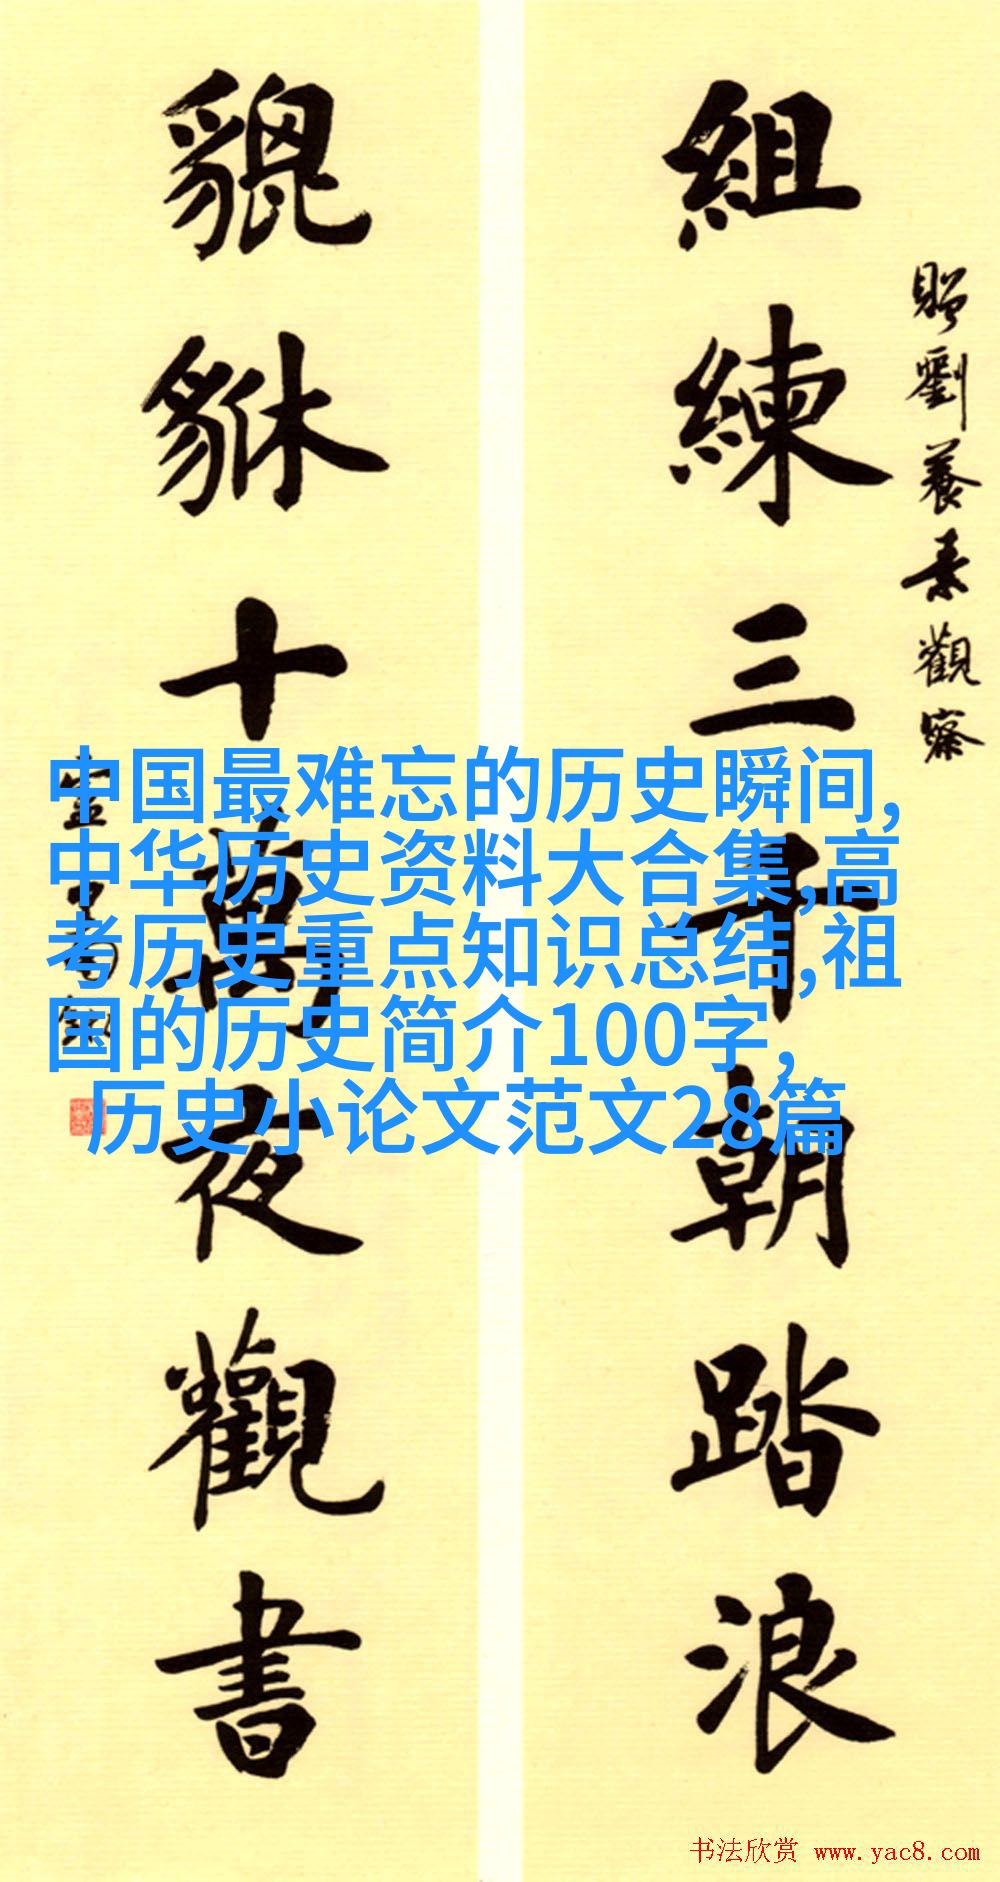 贈劉養素觀察
組練三千朝踏浪
貔貅十萬夜觀書
中国最难忘的历史瞬间,
中华历史资料大合集,高
考历史重点知识总结,祖
国的历史简介100字,
历史小论文范文28篇
书法欣赏 www.yac8.com